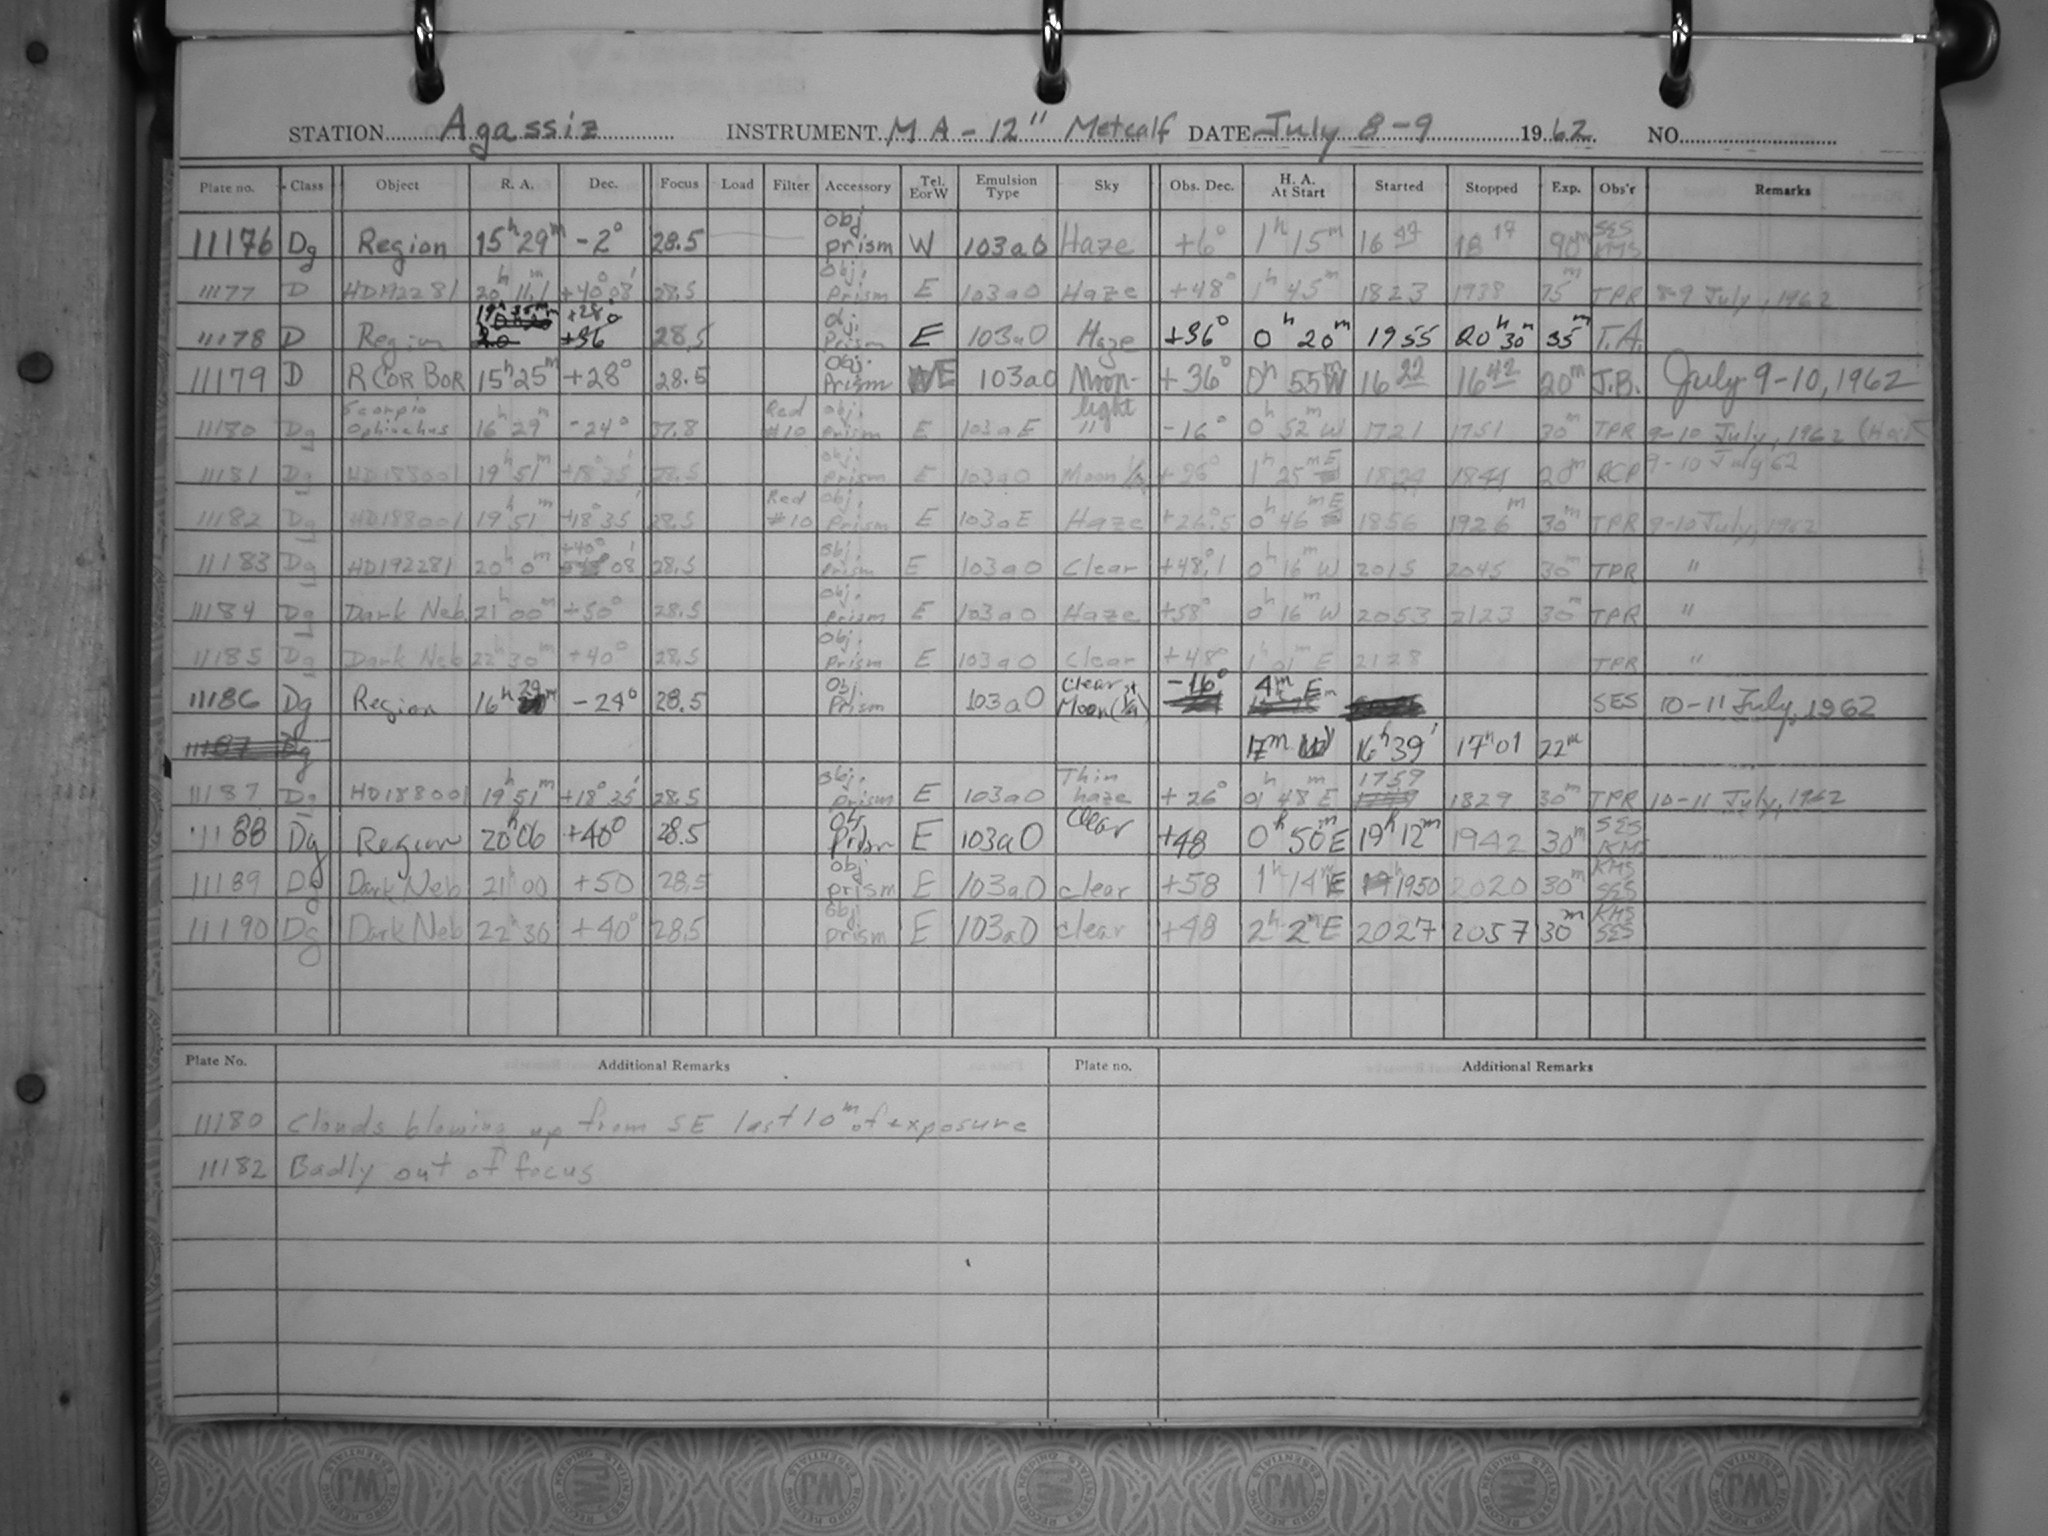 STATION Agassiz INSTRUMENT MA - 12" Metcalf DATE July 8-9 1962. NO.
Plate no. Class Object R. A. Dec. Focus Load Filter Accessory Tel. E or W Emulsion Type Sky Obs. Dec. H. A. At Start Started Stopped Exp. Obs'r Remarks
11176 Dg Region 15h 29m -2° 28.5 obj. prism W 103a0 Haze +6° 1h 15m 16 47 18 17 90m SES KMS
11177 D HD192281 20h 11.1m +40° 08' 28.5 obj. Prism E 103a0 Haze +48° 1h 45m 1823 1938 75m TPR 8-9 July, 1962
11178 D Region +28° +36 28.5 obj. Prism E 103a0 Haze +36° 0h 20m 1955 20h 30m 35m T.A.
11179 D R COR BOR 15h 25m +28° 28.5 Obj. Prism E 103a0 Moon-light +36° 0h 55W 16 22 16 42 20m J.B. July 9-10, 1962
11180 Dg Scorpio Ophiuchus 16h 29m -24° 37.8 Red #10 obj. Prism E 103aE " -16° 0h 52m W 1721 1751 30m TPR 9-10 July, 1962
11181 Dg HD188001 19h 51m +18° 35' 28.5 obj. Prism E 103a0 Moon +26° 1h 25m E 1824 1844 20m RCP 9-10 July 62
11182 Dg HD188001 19h 51m +18° 35' 28.5 Red #10 obj. Prism E 103aE Haze +26°.5 0h 46m E 1856 1926m 30m TPR 9-10 July, 1962
11183 Dg HD192281 20h 0m +40° 08' 28.5 obj. Prism E 103a0 Clear +48°.1 0h 16m W 2015 2045 30m TPR "
11184 Dg Dark Neb 21h 00m +50° 28.5 obj. Prism E 103a0 Haze +58° 0h 16m W 2053 2123 30m TPR "
11185 Dg Dark Neb 22h 30m +40° 28.5 Obj. Prism E 103a0 Clear +48° 1h 01m E 2128 TPR "
11186 Dg Region 16h 29m -24° 28.5 Obj. Prism 103a0 Clear Moon -16° 4m E SES 10-11 July, 1962
11187 Dg 17m W 16h 39' 17h 01 22m
11187 Dg HD188001 19h 51m +18° 35' 28.5 obj. Prism E 103a0 Thin haze +26° 01h 48m E 1759 1829 30m TPR 10-11 July, 1962
11188 Dg Region 20h 06 +40° 28.5 obj. Prism E 103a0 Clear +48 0h 50m E 19h 12m 1942 30m SES KMS
11189 Dg Dark Neb 21h 00 +50 28.5 obj prism E 103a0 clear +58 1h 14m E 1950 2020 30m KMS SES
11190 Dg Dark Neb 22h 30 +40° 28.5 obj. prism E 103a0 clear +48 2h 2m E 2027 2057 30m KMS SES
Plate No. Additional Remarks Plate no. Additional Remarks
11180 Clouds blowing up from SE last 10m of exposure
11182 Badly out of focus